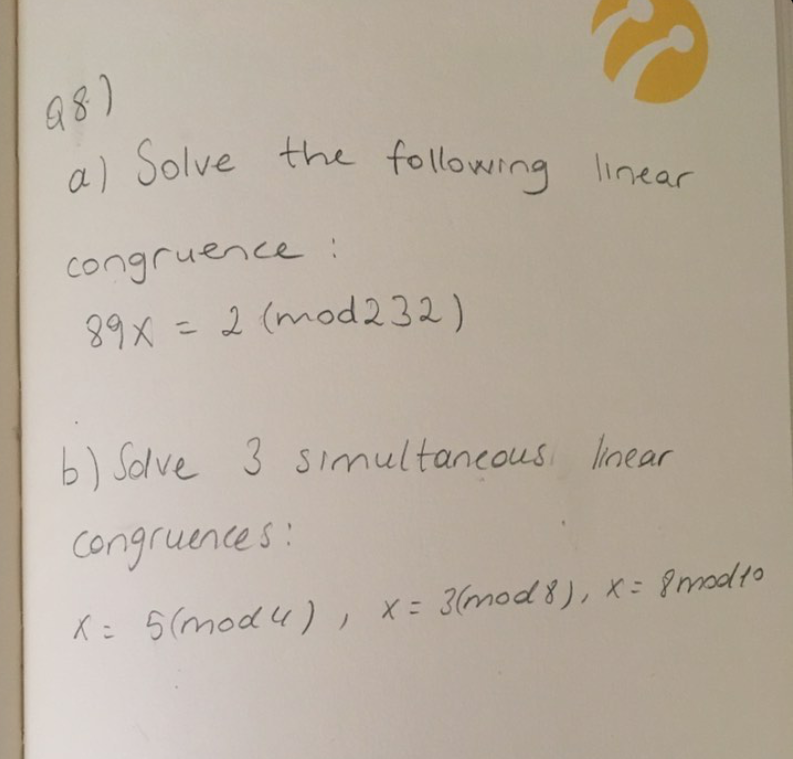 Q8)
a) Solve the following linear
congruence :
89x = 2 (mod232)
b) Solve 3 simultaneous linear
congruences:
x = 5(mod4) , x = 3(mod8), x = 8mod10